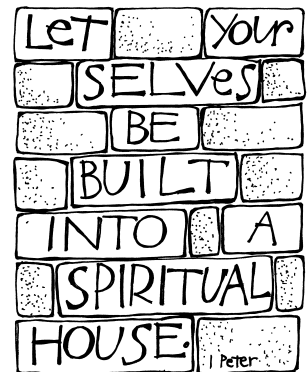 Let Your
SELVes
BE
BUILT
INTO A
SPIRITUAL
HOUSE.
1 Peter